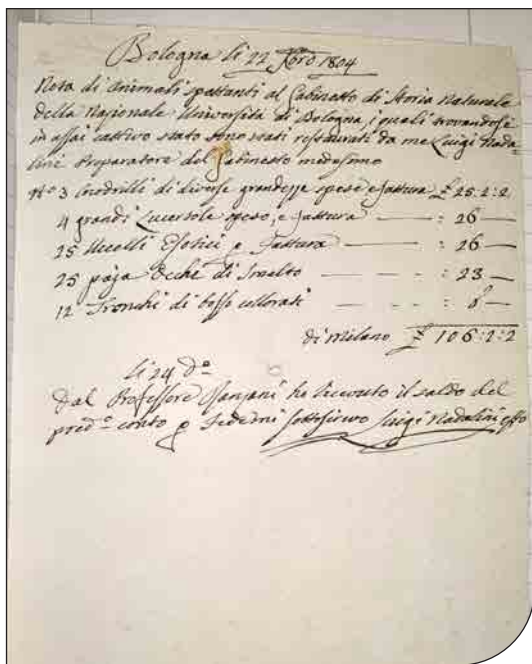 Bologna li 22 Xbro 1804
Nota di Animali spettanti al Gabinetto di Storia Naturale
della Nazionale Università di Bologna, i quali trovandosi
in assai cattivo stato sono stati restaurati da me Luigi Nada-
lini Preparatore del Gabinetto medesimo
No 3 Cocodrilli di diverse grandezze spese e fattura £ 25:2:2
4 grandi Lucertole spese, e fattura — : 26 —
25 Uccelli Esotici p Fattura — : 26 —
25 paja Occhi di Smalto — — — : 23 —
12 Tronchi di bosso collorati — — — : 6 —
di Milano £ 106:2:2
li 24 do
Dal Professore Ranzani ho ricevuto il saldo del
pred.o conto p Fede mi sottoscrivo Luigi Nadalini